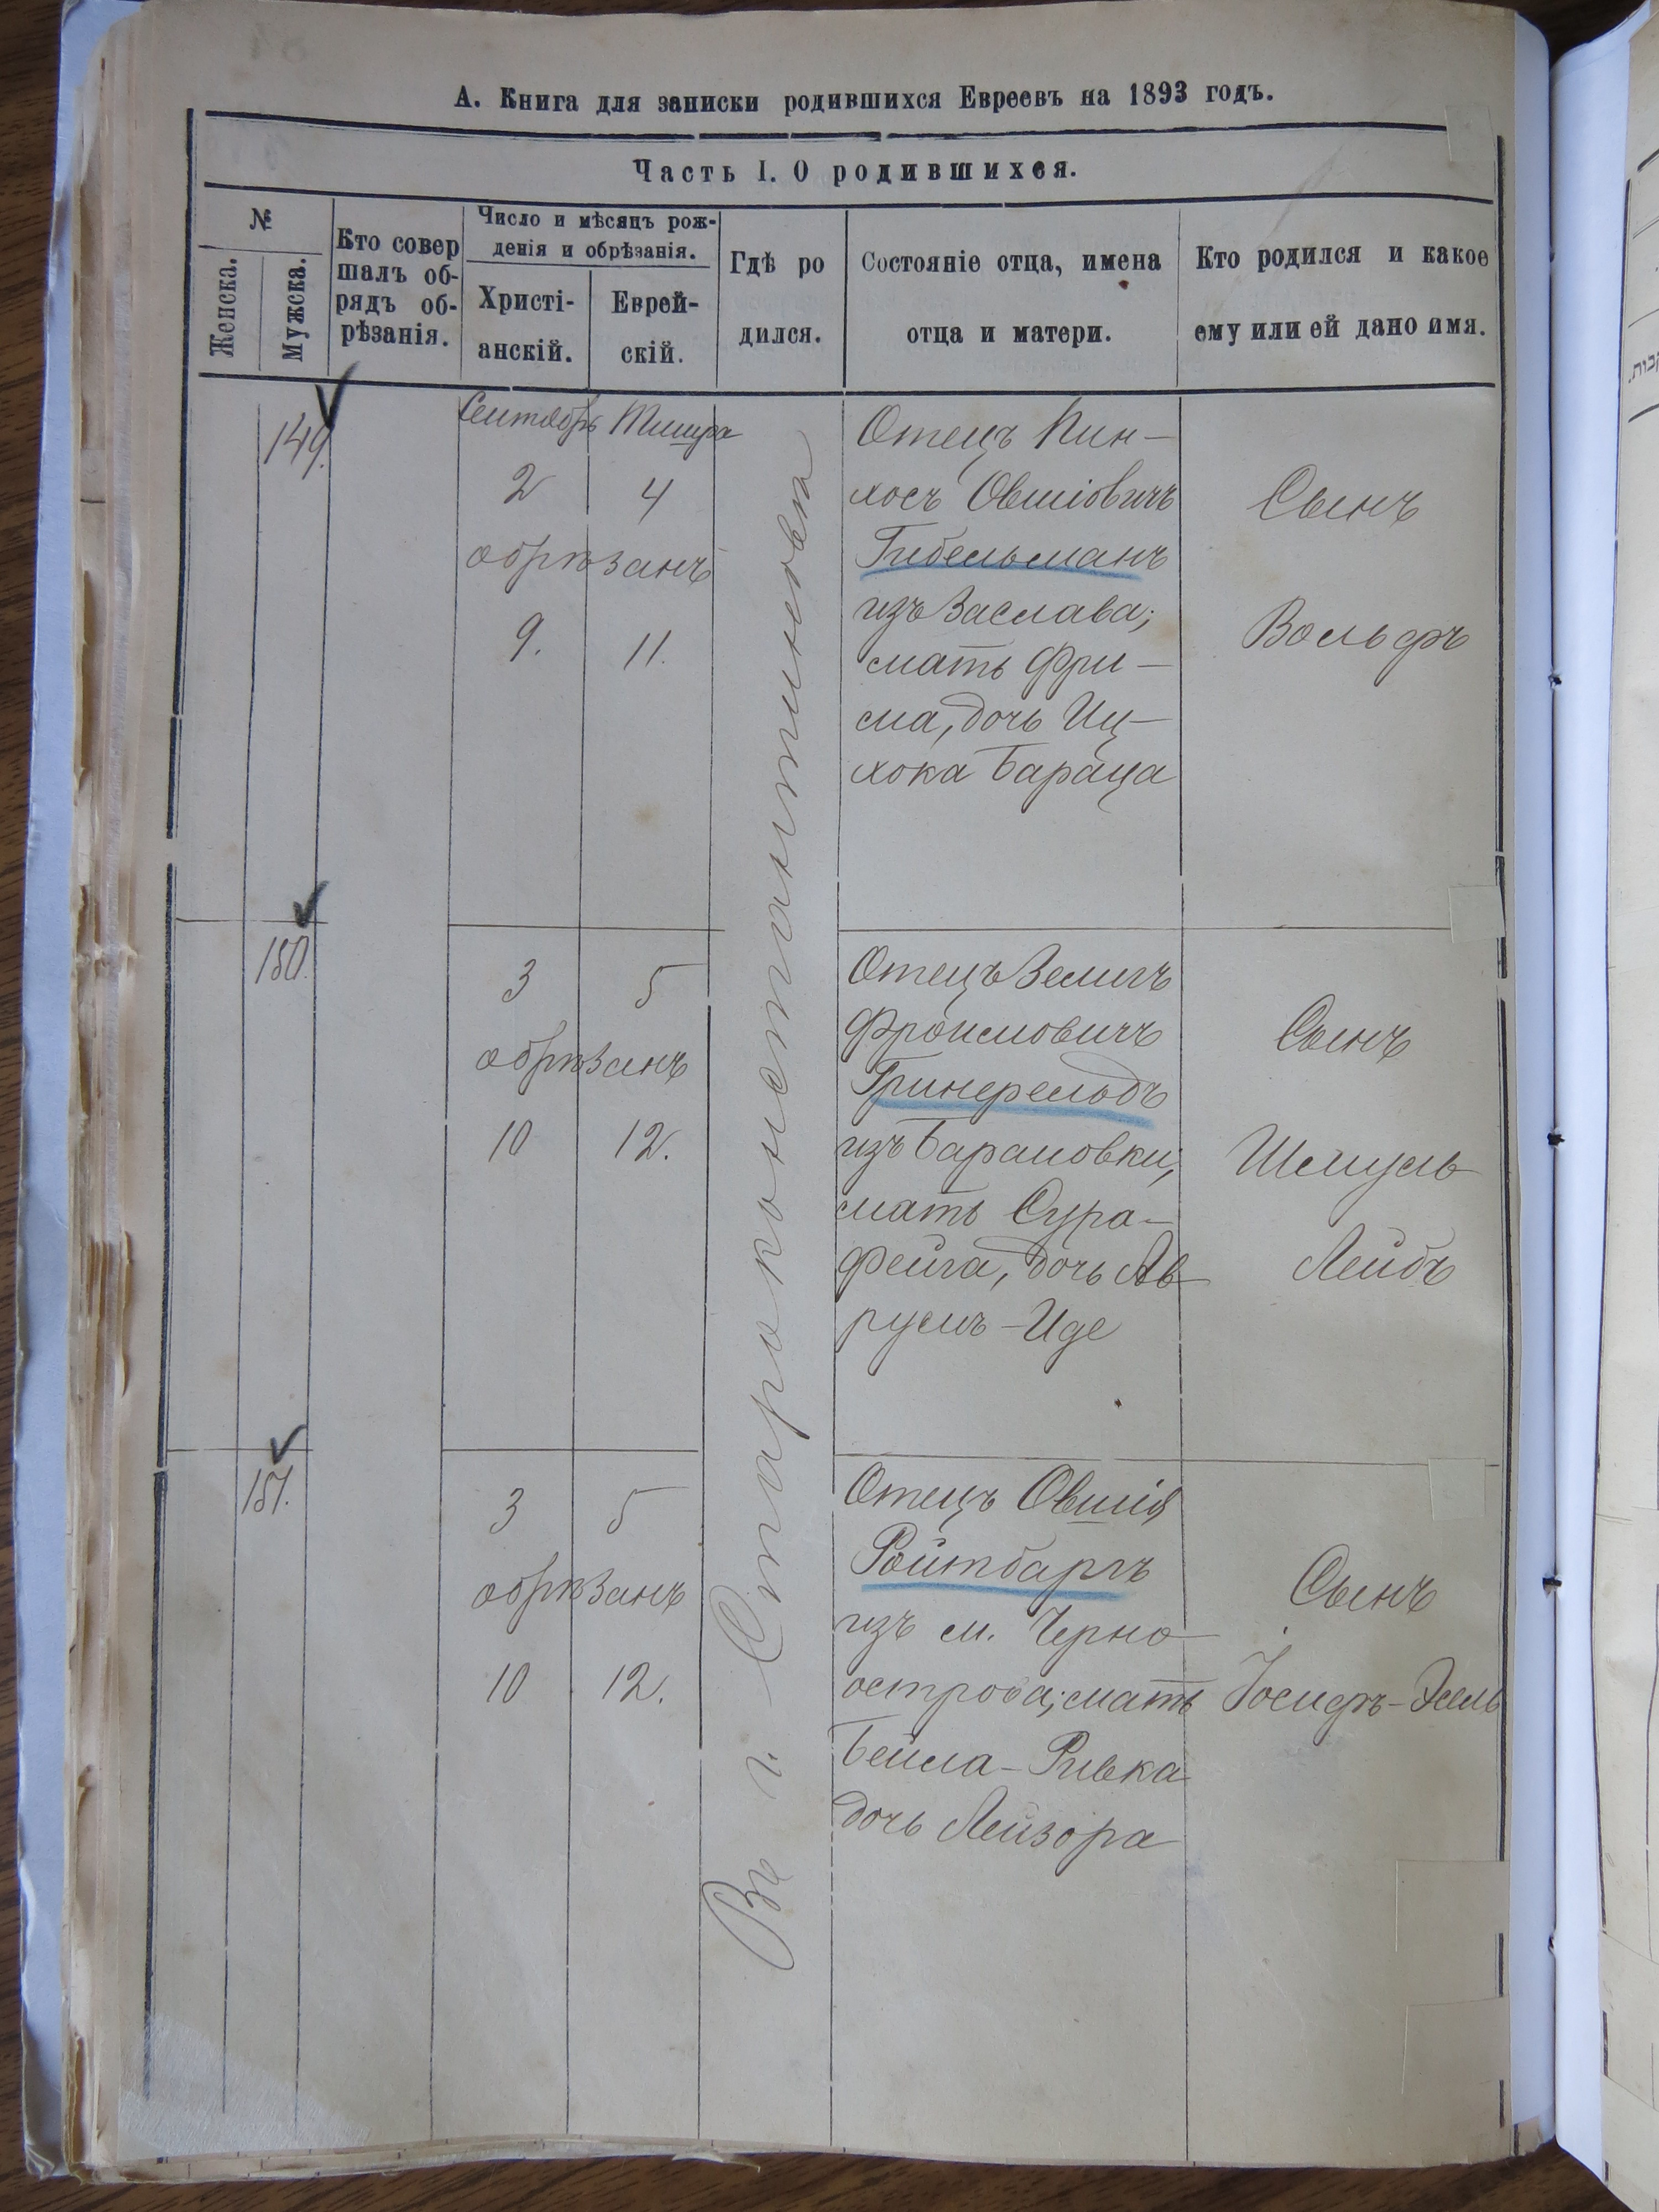 А. Книга для записки родившихся Евреевъ на 1893 годъ.
Часть I. О родившихся.
№
Женска.
Мужска.
Кто совер
шалъ об-
рядъ об-
рѣзанія.
Число и мѣсяцъ рож-
денія и обрѣзанія.
Христі-
анскій.
Еврей-
скій.
Гдѣ ро
дился.
Состояніе отца, имена
отца и матери.
Кто родился и какое
ему или ей дано имя.
149.
Сентябрь Тишра
2 4
обрѣзанъ
9. 11.
Въ г. Староконстантиновѣ
Отецъ Пин-
хосъ Овшіовичъ
Гибельманъ
изъ Заслава;
мать Фри-
ма, дочь Иц-
хока Бараца
Сынъ
Вольфъ
150.
3 5
обрѣзанъ
10 12.
Отецъ Зелигъ
Фроимовичъ
Гринфельдъ
изъ Барановки;
мать Сура-
Фейга, дочь Ав-
румъ-Иде
Сынъ
Шмуль
Лейбъ
151.
3 5
обрѣзанъ
10 12.
Отецъ Овшія
Ройтбаргъ
изъ м. Черно-
острова; мать
Бейла-Ривка
дочь Лейзора
Сынъ
Іосифъ-Эсель